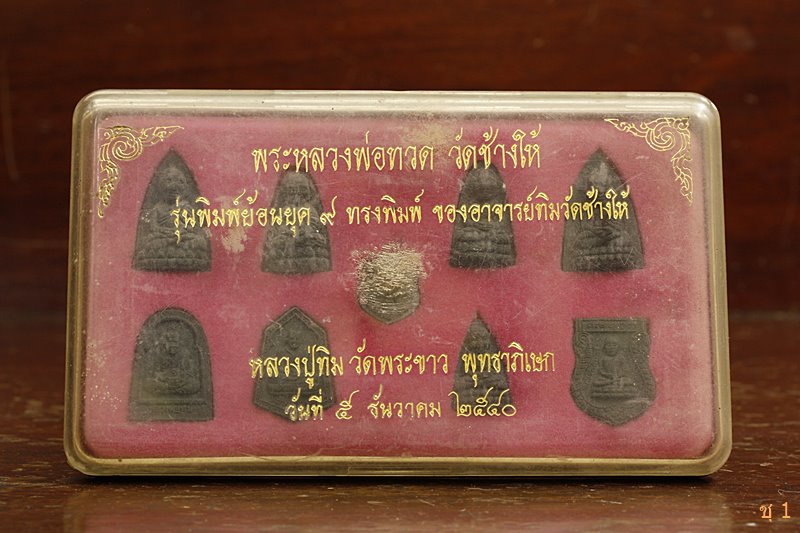 พระหลวงพ่อทวด วัดช้างให้
รุ่นพิมพ์ย้อนยุค ๙ ทรงพิมพ์ ของอาจารย์ทิมวัดช้างให้
หลวงปู่ทิม วัดพระขาว พุทธาภิเษก
วันที่ ๕ ธันวาคม ๒๕๔๐
ชุ 1